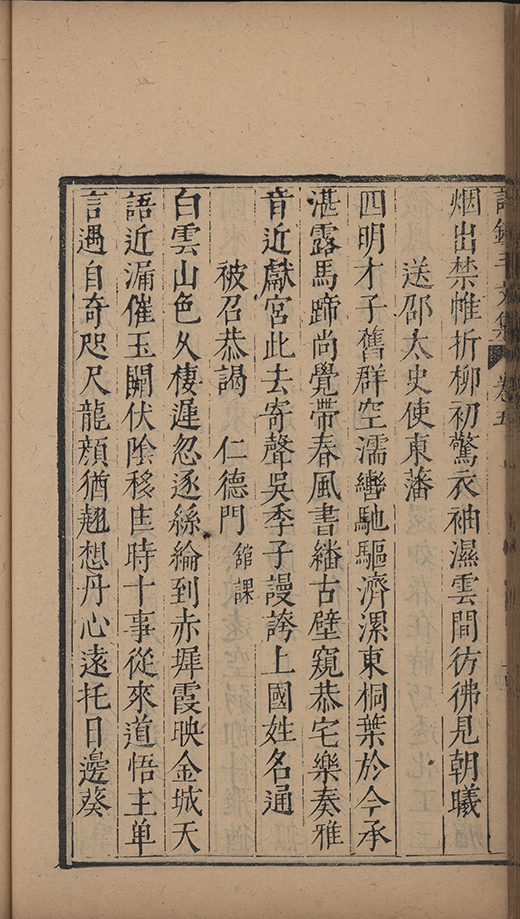 文集 卷五
烟出禁帷折柳初驚衣袖濕雲間彷彿見朝曦
送邵太史使東藩
四明才子舊群空濡轡馳驅濟漯東桐葉於今承
湛露馬蹄尚覺帶春風書繙古壁窺恭宅樂奏雅
音近獻宮此去寄聲吳季子謾誇上國姓名通
被召恭謁 仁德門 館課
白雲山色久棲遲忽逐絲綸到赤墀霞映金城天
語近漏催玉闕伏陰移匡時十事從來道悟主单
言遇自奇咫尺龍顔猶翹想丹心遠托日邊葵